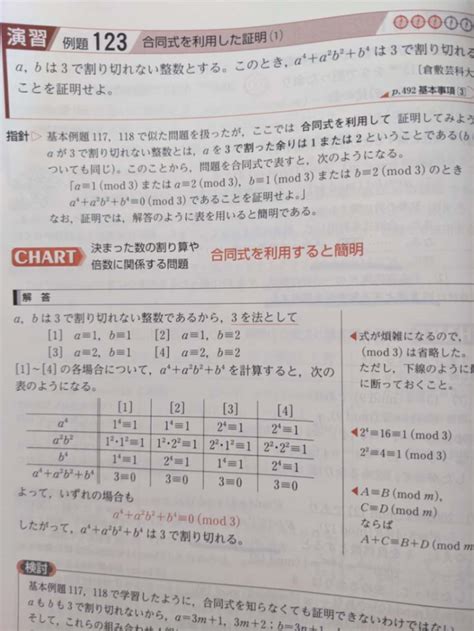 演習 例題 123 合同式を利用した証明 (1)
a, b は 3 で割り切れない整数とする。このとき，a⁴+a²b²+b⁴ は 3 で割り切れる
ことを証明せよ。 [倉敷芸科大
p.492 基本事項 3
指針 基本例題 117, 118 で似た問題を扱ったが，ここでは 合同式を利用して 証明してみよう
a が 3 で割り切れない整数とは，a を 3 で割った余りは 1 または 2 ということである (b
ついても同じ)。このことから，問題を合同式で表すと，次のようになる。
「a≡1 (mod 3) または a≡2 (mod 3)，b≡1 (mod 3) または b≡2 (mod 3) のとき
a⁴+a²b²+b⁴≡0 (mod 3) であることを証明せよ。」
なお，証明では，解答のように表を用いると簡明である。
CHART 決まった数の割り算や
倍数に関する問題 合同式を利用すると簡明
解答
a, b は 3 で割り切れない整数であるから，3 を法として
[1] a≡1, b≡1 [2] a≡1, b≡2
[3] a≡2, b≡1 [4] a≡2, b≡2
[1]～[4] の各場合について，a⁴+a²b²+b⁴ を計算すると，次の
表のようになる。
◀式が煩雑になるので，
(mod 3) は省略した。
ただし，下線のように
に断っておくこと。
[1] [2] [3] [4]
a⁴ 1⁴≡1 1⁴≡1 2⁴≡1 2⁴≡1
a²b² 1²・1²≡1 1²・2²≡1 2²・1²≡1 2²・2²≡1
b⁴ 1⁴≡1 2⁴≡1 1⁴≡1 2⁴≡1
a⁴+a²b²+b⁴ 3≡0 3≡0 3≡0 3≡0
◀2⁴=16≡1 (mod 3)
2²=4≡1 (mod 3)
よって，いずれの場合も
a⁴+a²b²+b⁴≡0 (mod 3)
したがって，a⁴+a²b²+b⁴ は 3 で割り切れる。
◀A≡B (mod m),
C≡D (mod m)
ならば
A+C≡B+D (mod m
検討
基本例題 117, 118 で学習したように，合同式を知らなくても証明できないわけではない
a も b も 3 で割り切れないから，a=3m+1, 3m+2；b=3n+1,
そして，これらの組み合わせ